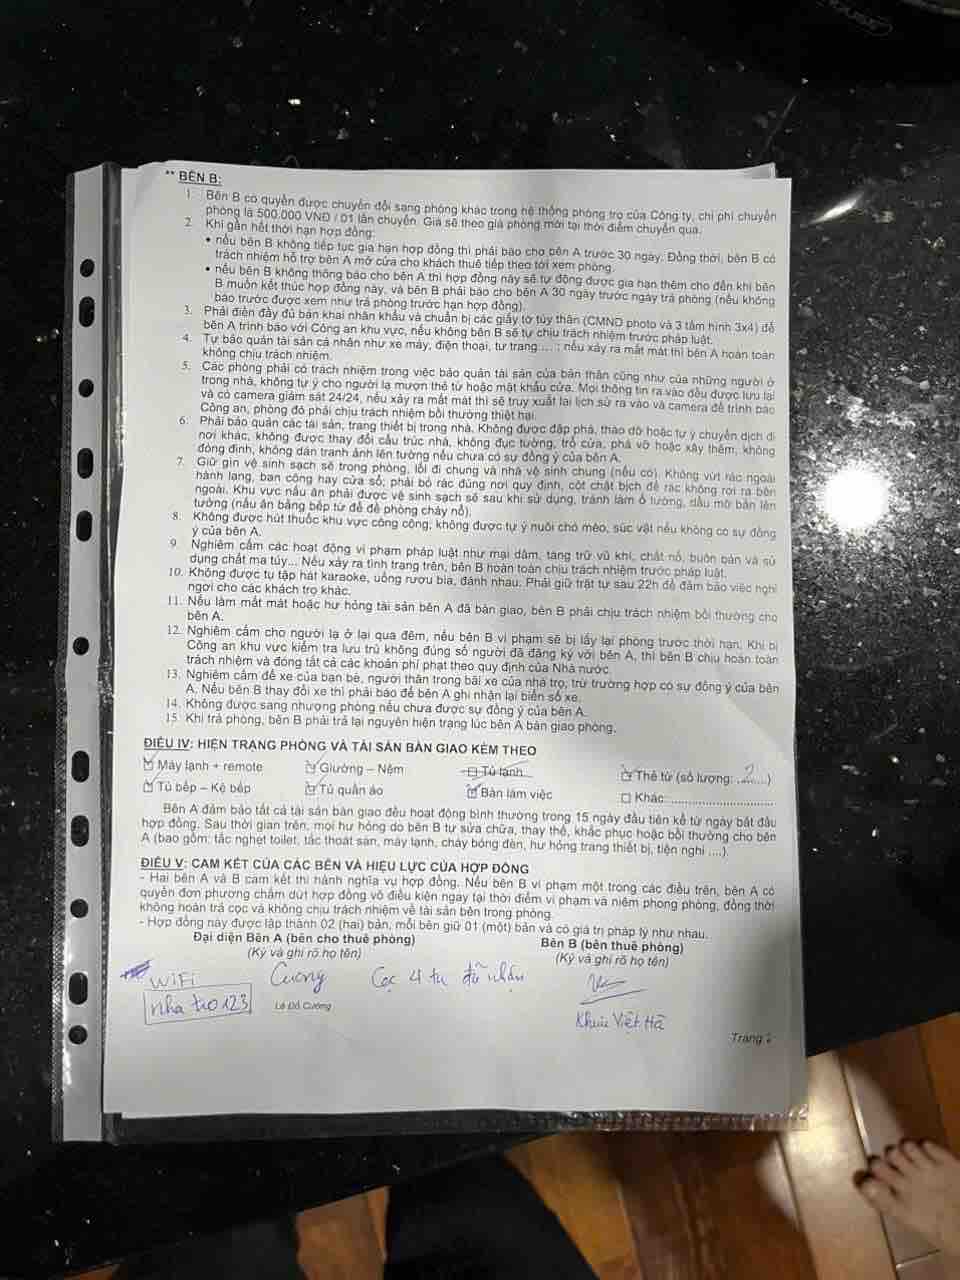 ** BÊN B:
1. Bên B có quyền được chuyển đổi sang phòng khác trong hệ thống phòng trọ của Công ty, chi phí chuyển
phòng là 500.000 VNĐ / 01 lần chuyển. Giá sẽ theo giá phòng mới tại thời điểm chuyển qua.
2. Khi gần hết thời hạn hợp đồng:
• nếu bên B không tiếp tục gia hạn hợp đồng thì phải báo cho bên A trước 30 ngày. Đồng thời, bên B có
trách nhiệm hỗ trợ bên A mở cửa cho khách thuê tiếp theo tới xem phòng.
• nếu bên B không thông báo cho bên A thì hợp đồng này sẽ tự động được gia hạn thêm cho đến khi bên
B muốn kết thúc hợp đồng này, và bên B phải báo cho bên A 30 ngày trước ngày trả phòng (nếu không
báo trước được xem như trả phòng trước hạn hợp đồng).
3. Phải điền đầy đủ bản khai nhân khẩu và chuẩn bị các giấy tờ tùy thân (CMND photo và 3 tấm hình 3x4) để
bên A trình báo với Công an khu vực, nếu không bên B sẽ tự chịu trách nhiệm trước pháp luật.
4. Tự bảo quản tài sản cá nhân như xe máy, điện thoại, tư trang.... ; nếu xảy ra mất mát thì bên A hoàn toàn
không chịu trách nhiệm.
5. Các phòng phải có trách nhiệm trong việc bảo quản tài sản của bản thân cũng như của những người ở
trong nhà, không tự ý cho người lạ mượn thẻ từ hoặc mật khẩu cửa. Mọi thông tin ra vào đều được lưu lại
và có camera giám sát 24/24, nếu xảy ra mất mát thì sẽ truy xuất lại lịch sử ra vào và camera để trình báo
Công an, phòng đó phải chịu trách nhiệm bồi thường thiệt hại.
6. Phải bảo quản các tài sản, trang thiết bị trong nhà. Không được đập phá, tháo dỡ hoặc tự ý chuyển dịch đi
nơi khác, không được thay đổi cấu trúc nhà, không đục tường, trổ cửa, phá vỡ hoặc xây thêm, không
đóng đinh, không dán tranh ảnh lên tường nếu chưa có sự đồng ý của bên A.
7. Giữ gìn vệ sinh sạch sẽ trong phòng, lối đi chung và nhà vệ sinh chung (nếu có). Không vứt rác ngoài
hành lang, ban công hay cửa sổ; phải bỏ rác đúng nơi quy định, cột chặt bịch để rác không rơi ra bên
ngoài. Khu vực nấu ăn phải được vệ sinh sạch sẽ sau khi sử dụng, tránh làm ố tường, dầu mỡ bắn lên
tường (nấu ăn bằng bếp từ để đề phòng cháy nổ).
8. Không được hút thuốc khu vực công cộng; không được tự ý nuôi chó mèo, súc vật nếu không có sự đồng
ý của bên A.
9. Nghiêm cấm các hoạt động vi phạm pháp luật như mại dâm, tàng trữ vũ khí, chất nổ, buôn bán và sử
dụng chất ma túy... Nếu xảy ra tình trạng trên, bên B hoàn toàn chịu trách nhiệm trước pháp luật.
10. Không được tụ tập hát karaoke, uống rượu bia, đánh nhau. Phải giữ trật tự sau 22h để đảm bảo việc nghỉ
ngơi cho các khách trọ khác.
11. Nếu làm mất mát hoặc hư hỏng tài sản bên A đã bàn giao, bên B phải chịu trách nhiệm bồi thường cho
bên A.
12. Nghiêm cấm cho người lạ ở lại qua đêm, nếu bên B vi phạm sẽ bị lấy lại phòng trước thời hạn. Khi bị
Công an khu vực kiểm tra lưu trú không đúng số người đã đăng ký với bên A, thì bên B chịu hoàn toàn
trách nhiệm và đóng tất cả các khoản phí phạt theo quy định của Nhà nước.
13. Nghiêm cấm để xe của bạn bè, người thân trong bãi xe của nhà trọ, trừ trường hợp có sự đồng ý của bên
A. Nếu bên B thay đổi xe thì phải báo để bên A ghi nhận lại biển số xe.
14. Không được sang nhượng phòng nếu chưa được sự đồng ý của bên A.
15. Khi trả phòng, bên B phải trả lại nguyên hiện trạng lúc bên A bàn giao phòng.
ĐIỀU IV: HIỆN TRẠNG PHÒNG VÀ TÀI SẢN BÀN GIAO KÈM THEO
☑ Máy lạnh + remote ☑ Giường – Nệm ☐ Tủ lạnh ☑ Thẻ từ (số lượng: ...2...)
☑ Tủ bếp – Kệ bếp ☑ Tủ quần áo ☑ Bàn làm việc ☐ Khác: ....................
Bên A đảm bảo tất cả tài sản bàn giao đều hoạt động bình thường trong 15 ngày đầu tiên kể từ ngày bắt đầu
hợp đồng. Sau thời gian trên, mọi hư hỏng do bên B tự sửa chữa, thay thế, khắc phục hoặc bồi thường cho bên
A (bao gồm: tắc nghẹt toilet, tắc thoát sàn, máy lạnh, cháy bóng đèn, hư hỏng trang thiết bị, tiện nghi ....).
ĐIỀU V: CAM KẾT CỦA CÁC BÊN VÀ HIỆU LỰC CỦA HỢP ĐỒNG
- Hai bên A và B cam kết thi hành nghĩa vụ hợp đồng. Nếu bên B vi phạm một trong các điều trên, bên A có
quyền đơn phương chấm dứt hợp đồng vô điều kiện ngay tại thời điểm vi phạm và niêm phong phòng, đồng thời
không hoàn trả cọc và không chịu trách nhiệm về tài sản bên trong phòng.
- Hợp đồng này được lập thành 02 (hai) bản, mỗi bên giữ 01 (một) bản và có giá trị pháp lý như nhau.
Đại diện Bên A (bên cho thuê phòng) Bên B (bên thuê phòng)
(Ký và ghi rõ họ tên) (Ký và ghi rõ họ tên)
WiFi Cường Cọc 4 tr đã nhận
nha tro 123 Lê Đỗ Cường
Việt Hà
Trang 2